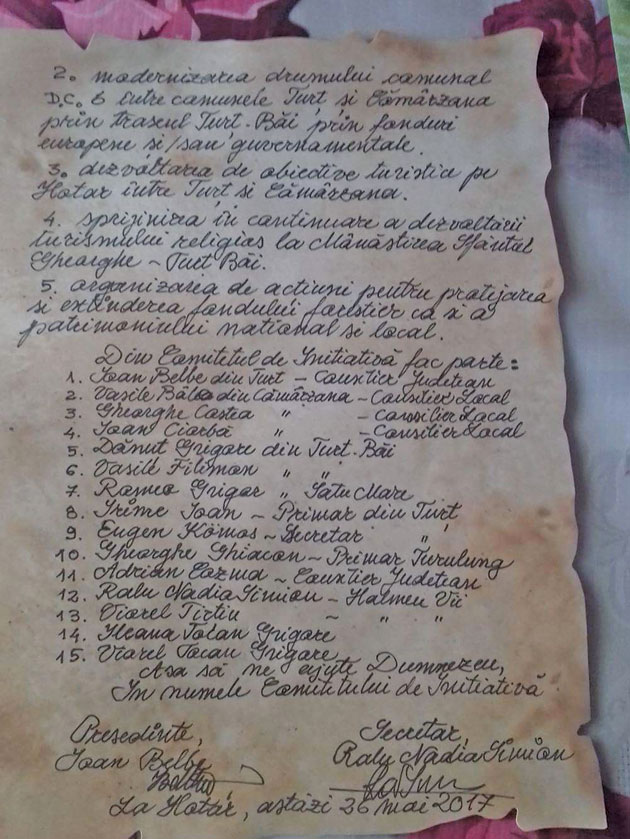 2. modernizarea drumului comunal
D.C. 6 între comunele Turț și Cămârzana
prin traseul Turț-Băi prin fonduri
europene și/sau guvernamentale.
3. dezvoltarea de obiective turistice pe
Hotar între Turț și Cămârzana.
4. sprijinirea în continuare a dezvoltării
turismului religios la Mănăstirea Sfântul
Gheorghe - Turț Băi.
5. organizarea de acțiuni pentru protejarea
și extinderea fondului forestier ca și a
patrimoniului național și local.
Din Comitetul de Inițiativă fac parte:
1. Ioan Belbe din Turț - Consilier Județean
2. Vasile din Cămârzana - Consilier Local
3. Gheorghe Costea " - Consilier Local
4. Ioan Ciorbă " - Consilier Local
5. Dănuț Grigore din Turț-Băi
6. Vasile Filimon " "
7. Romeo Grigor " Satu Mare
8. Irime Ioan - Primar din Turț
9. Eugen Kömos - Secretar "
10. Gheorghe Ghiacon - Primar Turulung
11. Adrian Cozma - Consilier Județean
12. Ralu Nadia Simion - Halmeu Vii
13. Viorel Tirtiu - " "
14. Ileana Tolan Grigore
15. Viorel Grigore
Așa să ne ajute Dumnezeu,
În numele Comitetului de Inițiativă
Președinte, Secretar,
Ioan Belbe Ralu Nadia Simion
La Hotar, astăzi 26 mai 2017